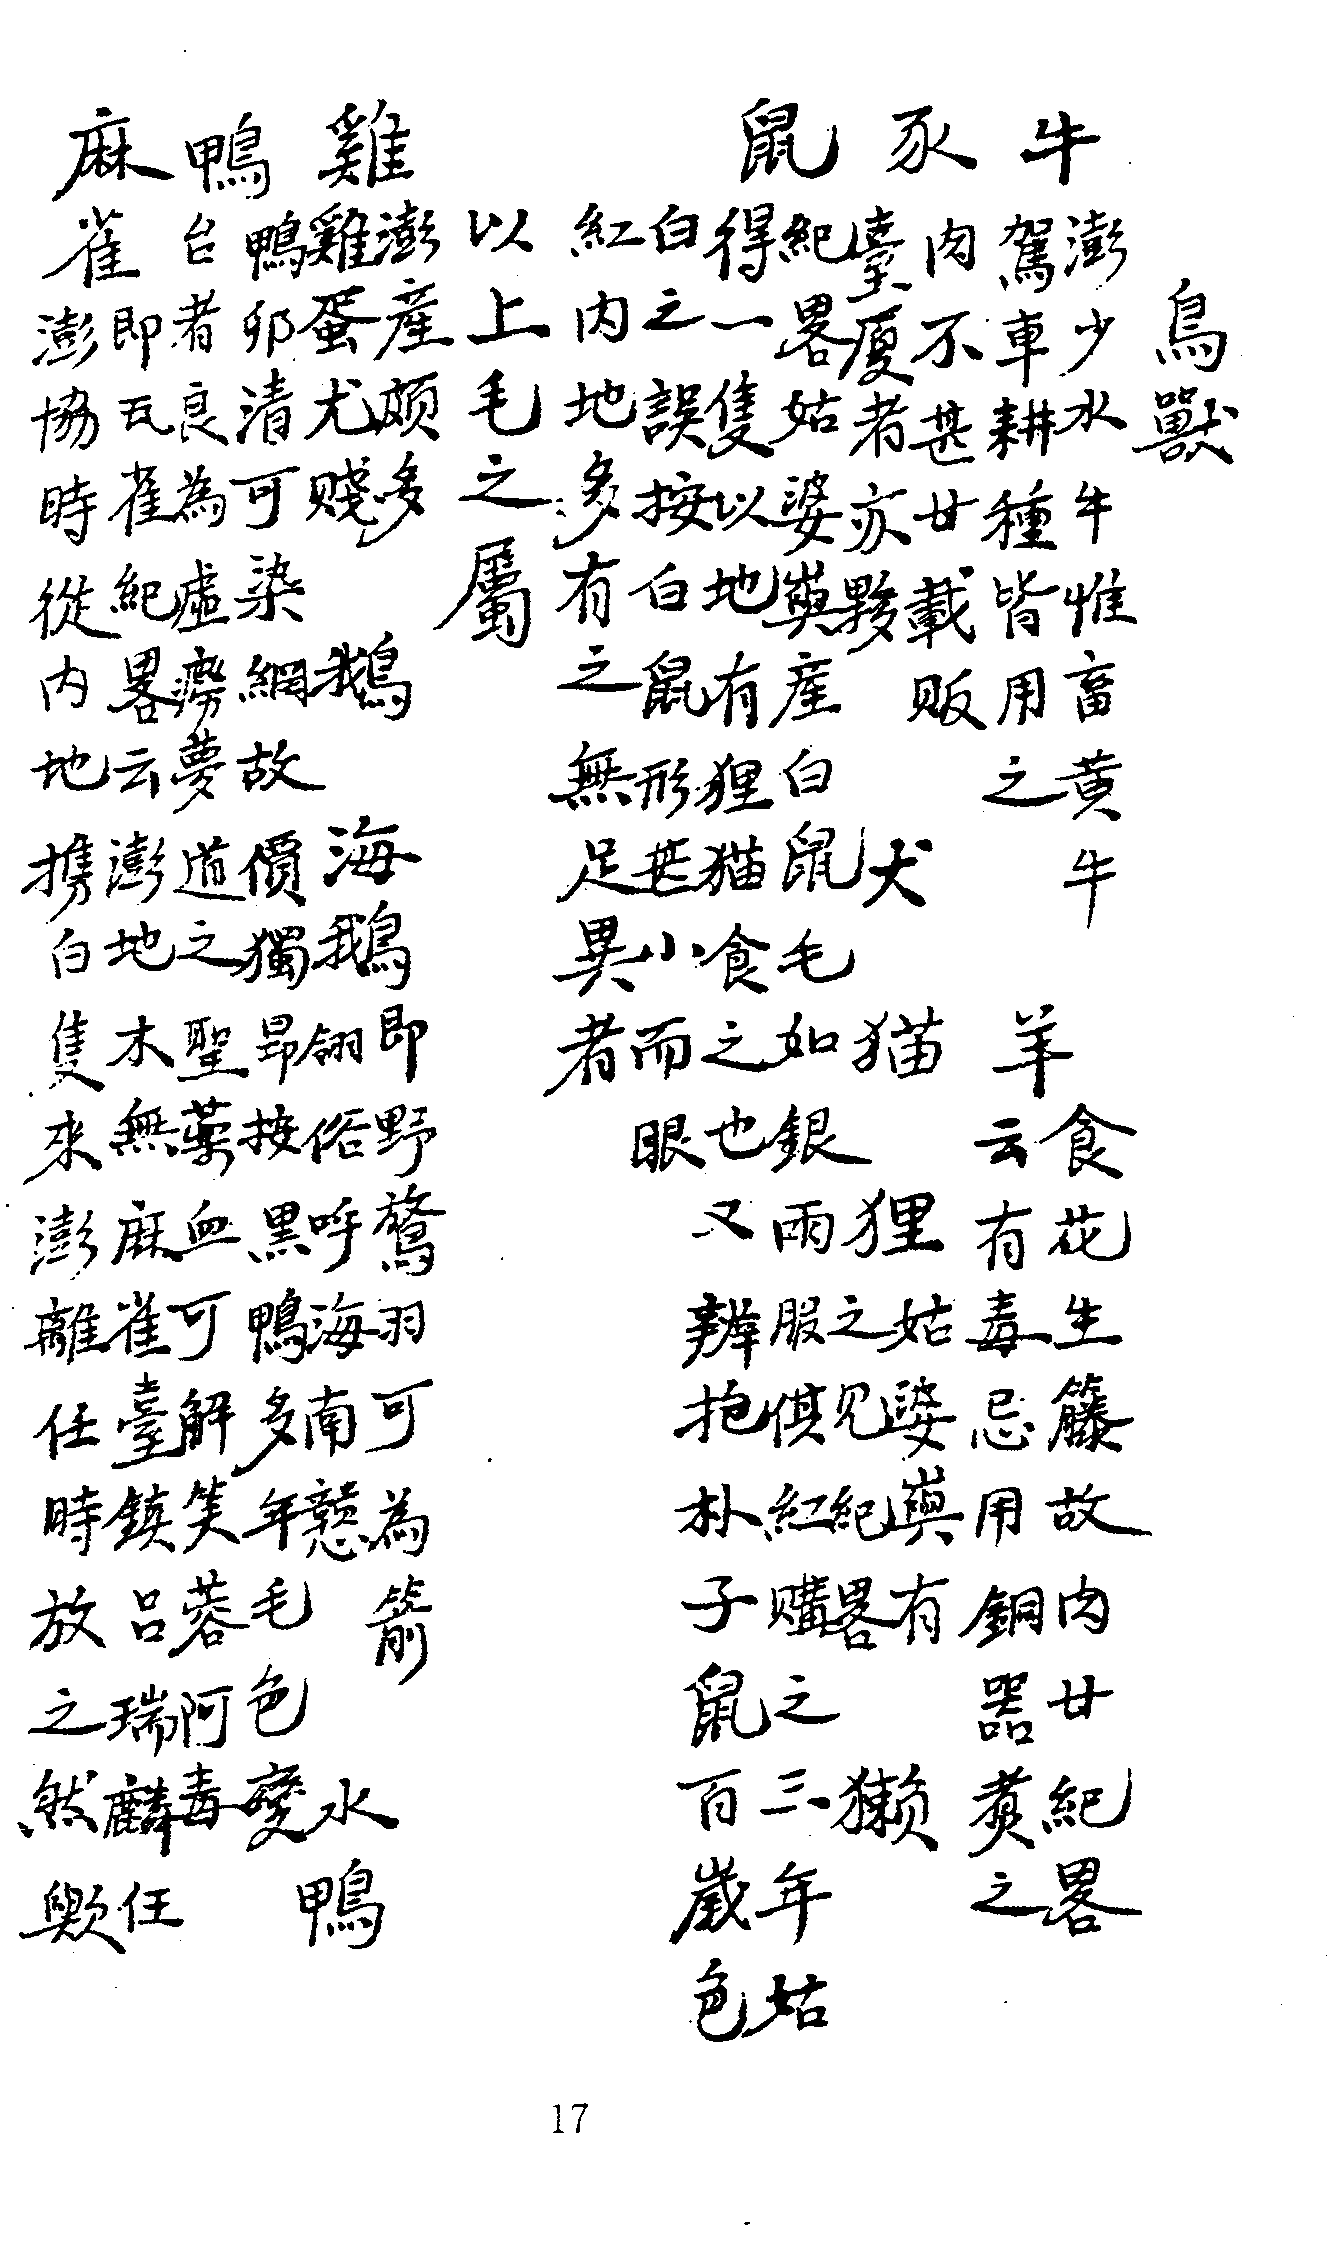 鳥獸
牛 澎少水牛惟畜黃牛
駕車耕種皆用之
羊 食花生籐故肉甘紀畧
云有毒忌用銅器煮之
豕 肉不甚甘載販
臺廈者亦夥
犬
猫
狸 姑婆嶼有
之見紀畧
獺
鼠 紀畧姑婆嶼產白鼠毛如銀兩服俱紅購之三年姑
得一隻以地有狸猫食之也又辨抱朴子鼠百歲色
白之誤按白鼠形甚小而眼
紅內地多有之無足異者
以上毛之屬
雞 澎產頗多
雞蛋尤賤
鵝
海鵝 即野鶩羽可為箭
翎俗呼海南戇
水鴨
鴨 鴨卵清可染網故價獨昂按黑鴨多年毛色變
台者良為虛癆夢道之聖藥血可解笑蓉阿毒
麻雀 即瓦雀紀畧云澎地木無麻雀臺鎮呂瑞麟任
澎協時從內地携白隻來澎離任時放之然歟
17